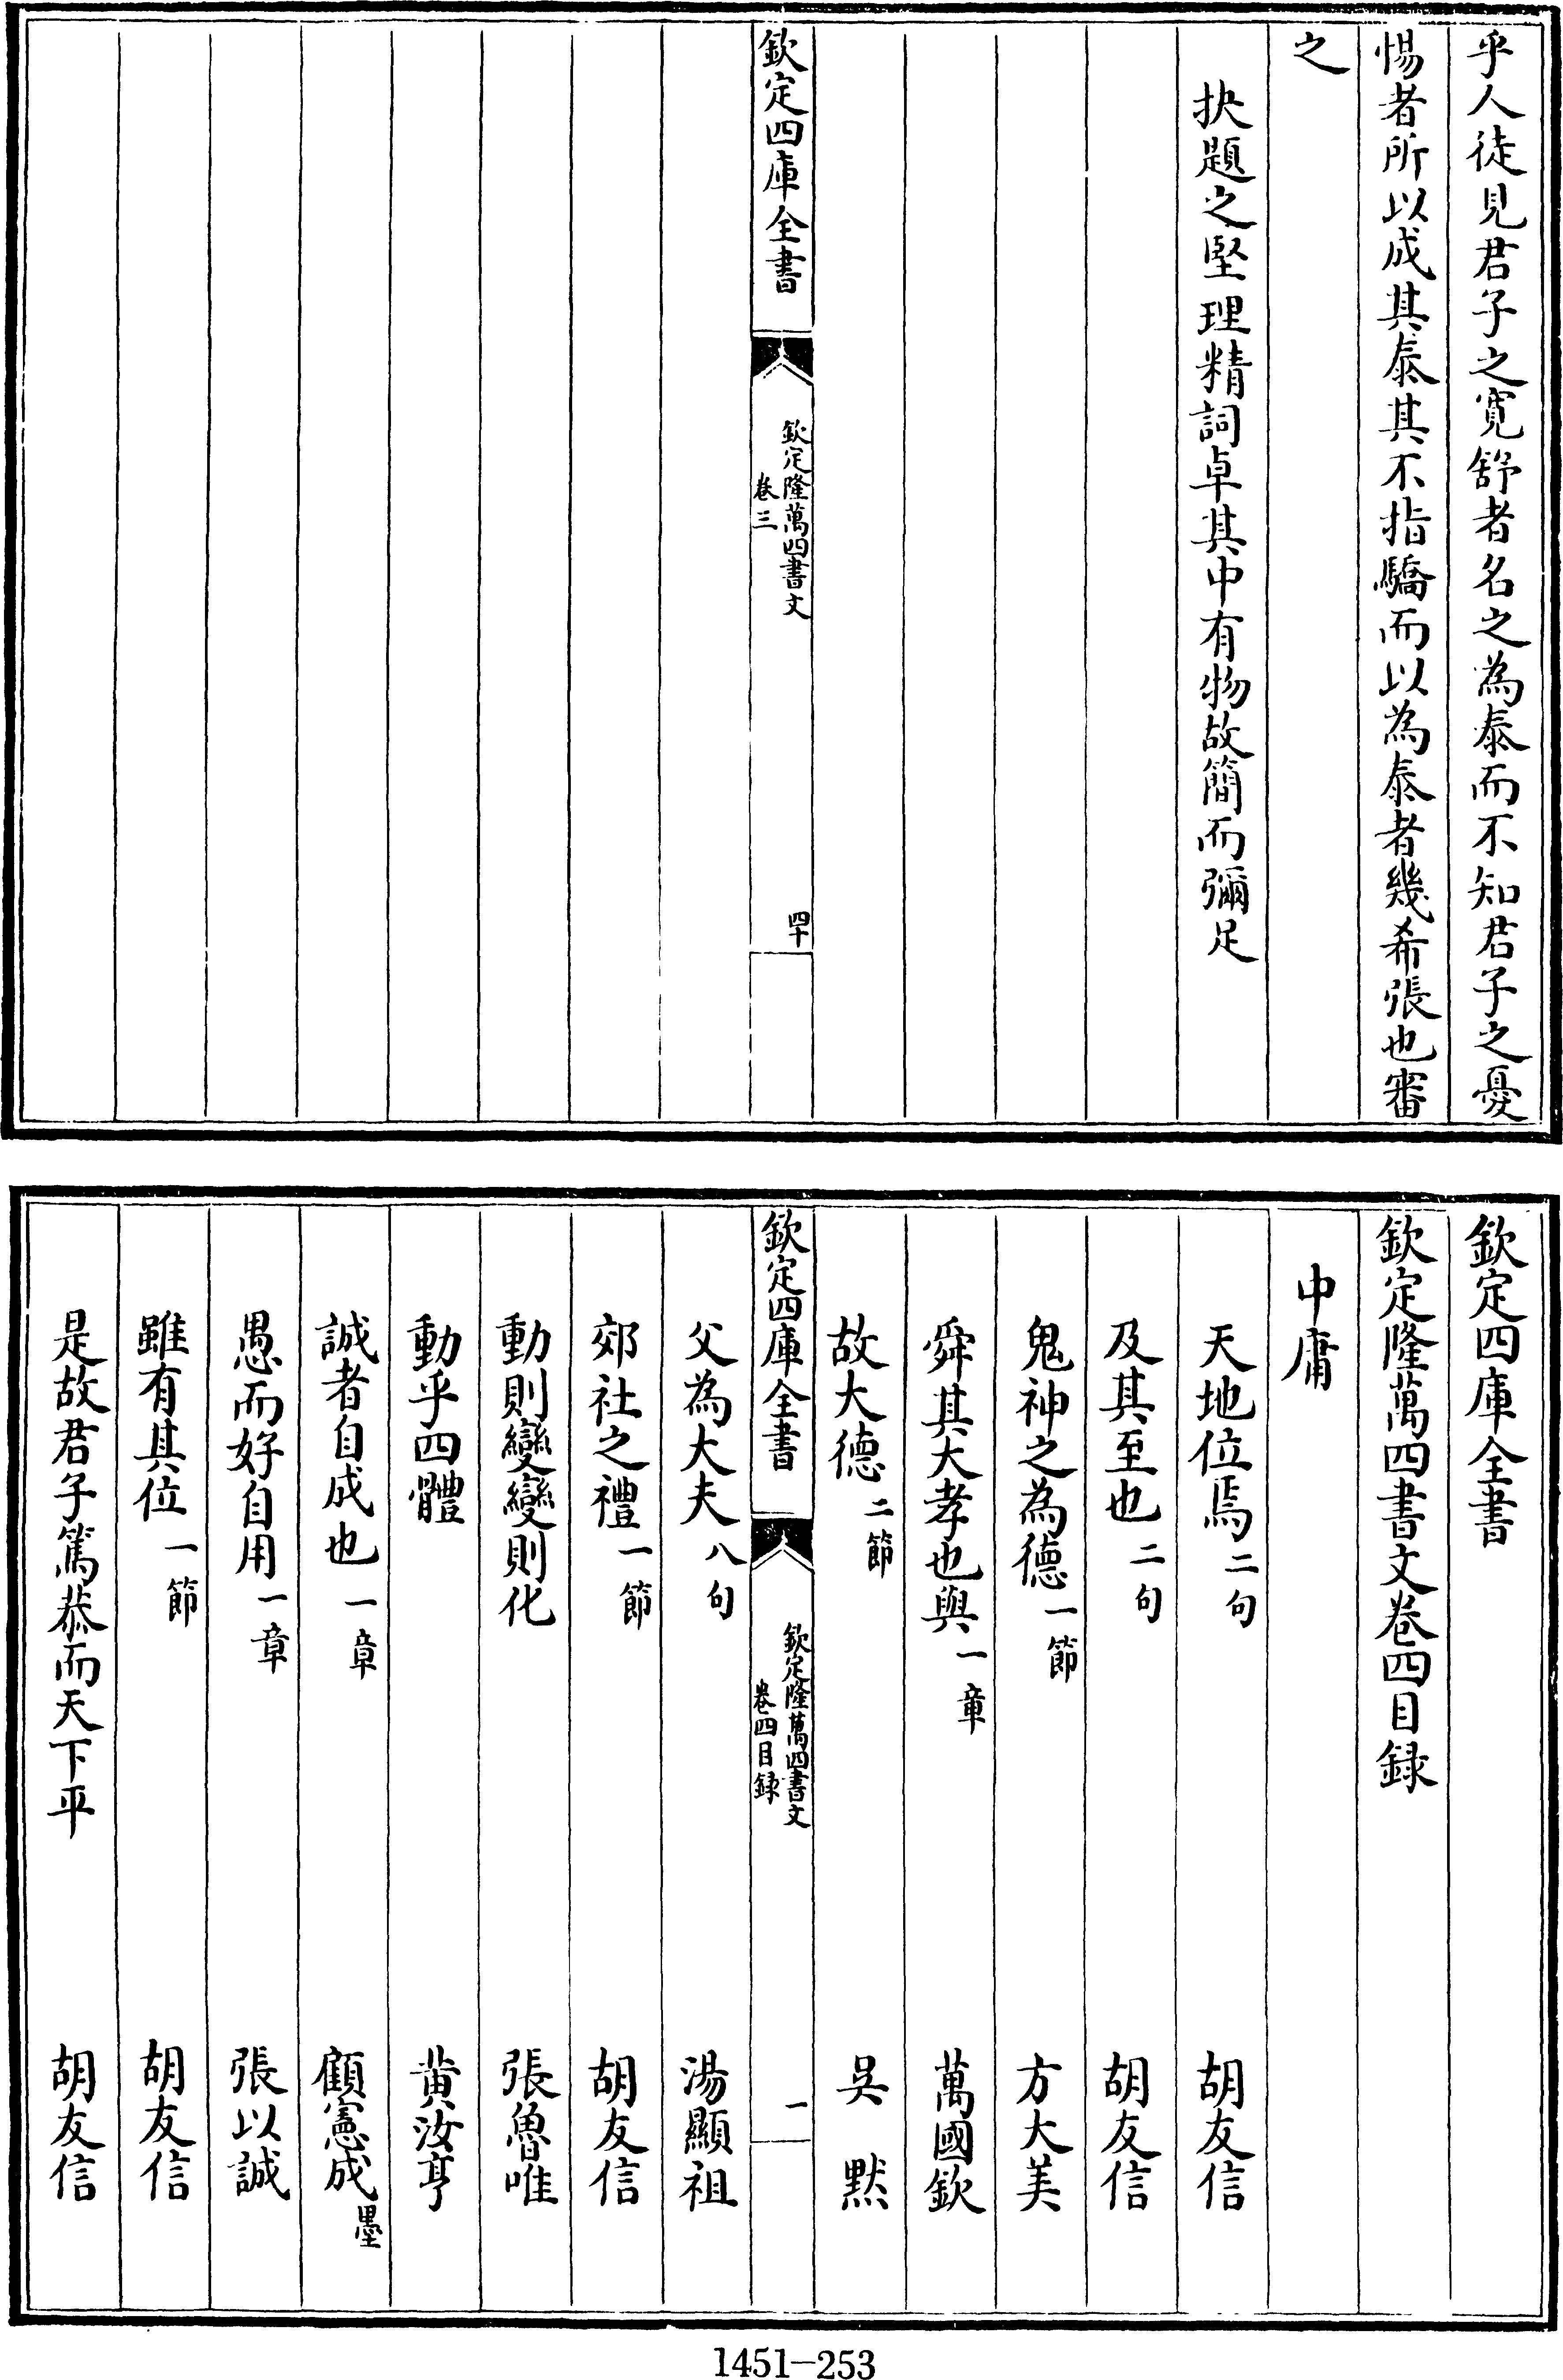 乎人徒見君子之寛舒者名之為泰而不知君子之憂
惕者所以成其泰其不指驕而以為泰者幾希張也審
之
抉題之堅理精詞卓其中有物故簡而彌足
欽定四庫全書
欽定隆萬四書文
卷三
四十
欽定四庫全書
欽定隆萬四書文卷四目録
中庸
天地位焉二句 胡友信
及其至也二句 胡友信
鬼神之為德一節 方大美
舜其大孝也與一章 萬國欽
故大德二節 吳默
欽定四庫全書
欽定隆萬四書文
卷四目録
一
父為大夫八句 湯顯祖
郊社之禮一節 胡友信
動則變變則化 張魯唯
動乎四體 黄汝亨
誠者自成也一章 顧憲成墨
愚而好自用一章 張以誠
雖有其位一節 胡友信
是故君子篤恭而天下平 胡友信
1451-253